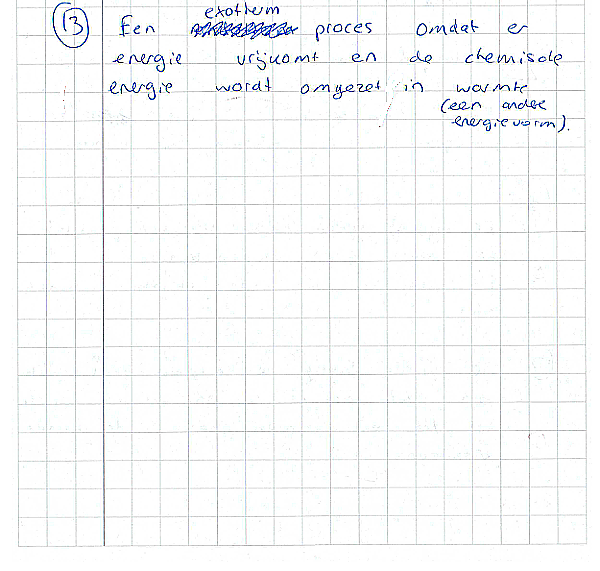 13 Een exotherm proces omdat er
energie vrijkomt en de chemische
energie wordt omgezet in warmte
(een ande
energievorm).